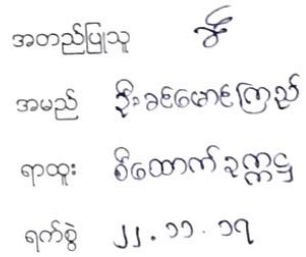 အတည်ပြုသူ
အမည် ဦးခင်မောင်ကြည်
ရာထူး စီထောက်ဥက္ကဋ္ဌ
ရက်စွဲ ၂၂.၁၁.၁၇